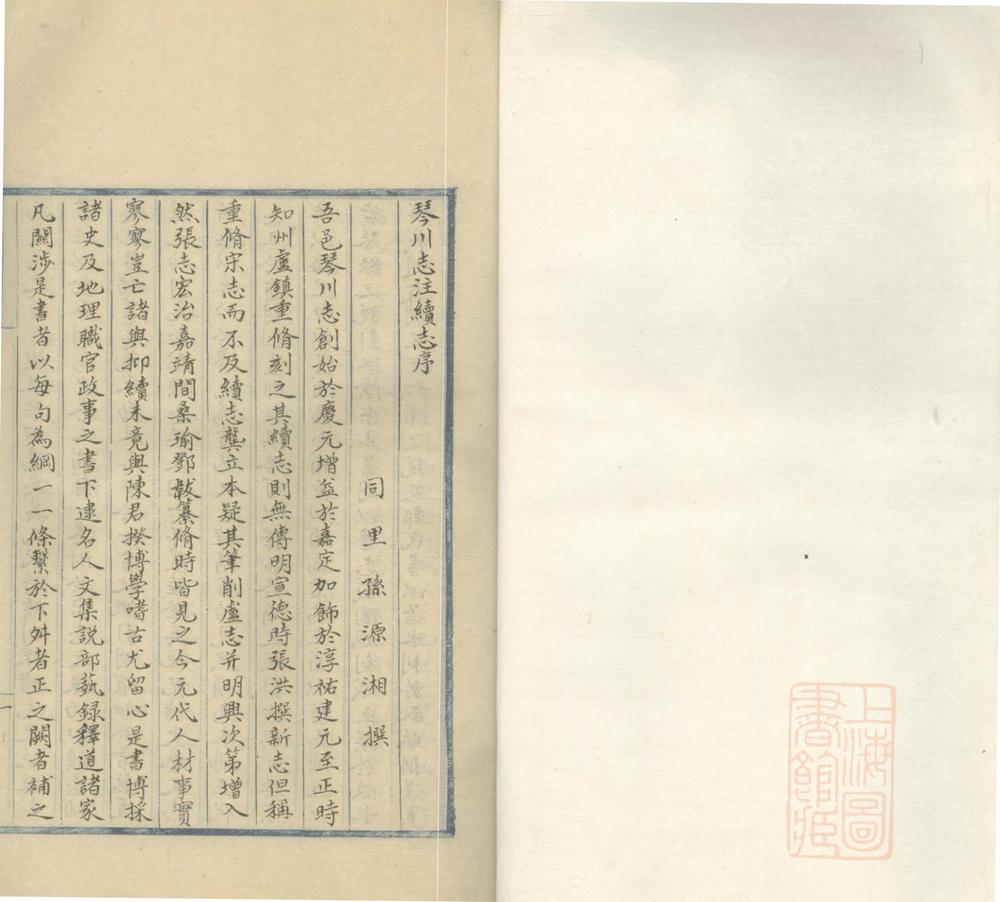 上海圖
書館藏
琴川志注續志序
同里孫源湘撰
吾邑琴川志創始於慶元增益於嘉定加飾於淳祐建元至正時
知州盧鎮重脩刻之其續志則無傳明宣德時張洪撰新志但稱
重脩宋志而不及續志龔立本疑其筆削盧志并明興次第增入
然張志宏治嘉靖間桑瑜鄧韍纂脩時皆見之今元代人材事實
寥寥豈亡諸與抑續未竟與陳君揆博學嗜古尤留心是書博採
諸史及地理職官政事之書下逮名人文集說部蓺錄釋道諸家
凡關涉是書者以每句為綱一一條繫於下舛者正之闕者補之
一